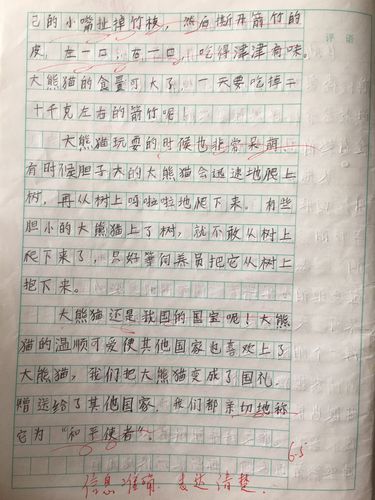 评语
己的小嘴扯掉竹枝，然后撕开箭竹的
皮，左一口，右一口，吃得津津有味。
大熊猫的食量可大了，一天要吃掉二
十千克左右的箭竹呢！
大熊猫玩耍的时候也非常呆萌，
有时候胆子大的大熊猫会迅速地爬上
树，再从树上呼啦啦地爬下来。有些
胆小的大熊猫上了树，就不敢从树上
爬下来了，只好等饲养员把它从树上
抱下来。
大熊猫还是我国的国宝呢！大熊
猫的温顺可爱使其他国家也喜欢上了
大熊猫，我们把大熊猫变成了国礼，
赠送给了其他国家，我们都亲切地称
它为“和平使者”。
6.5
信息准确，表达清楚。